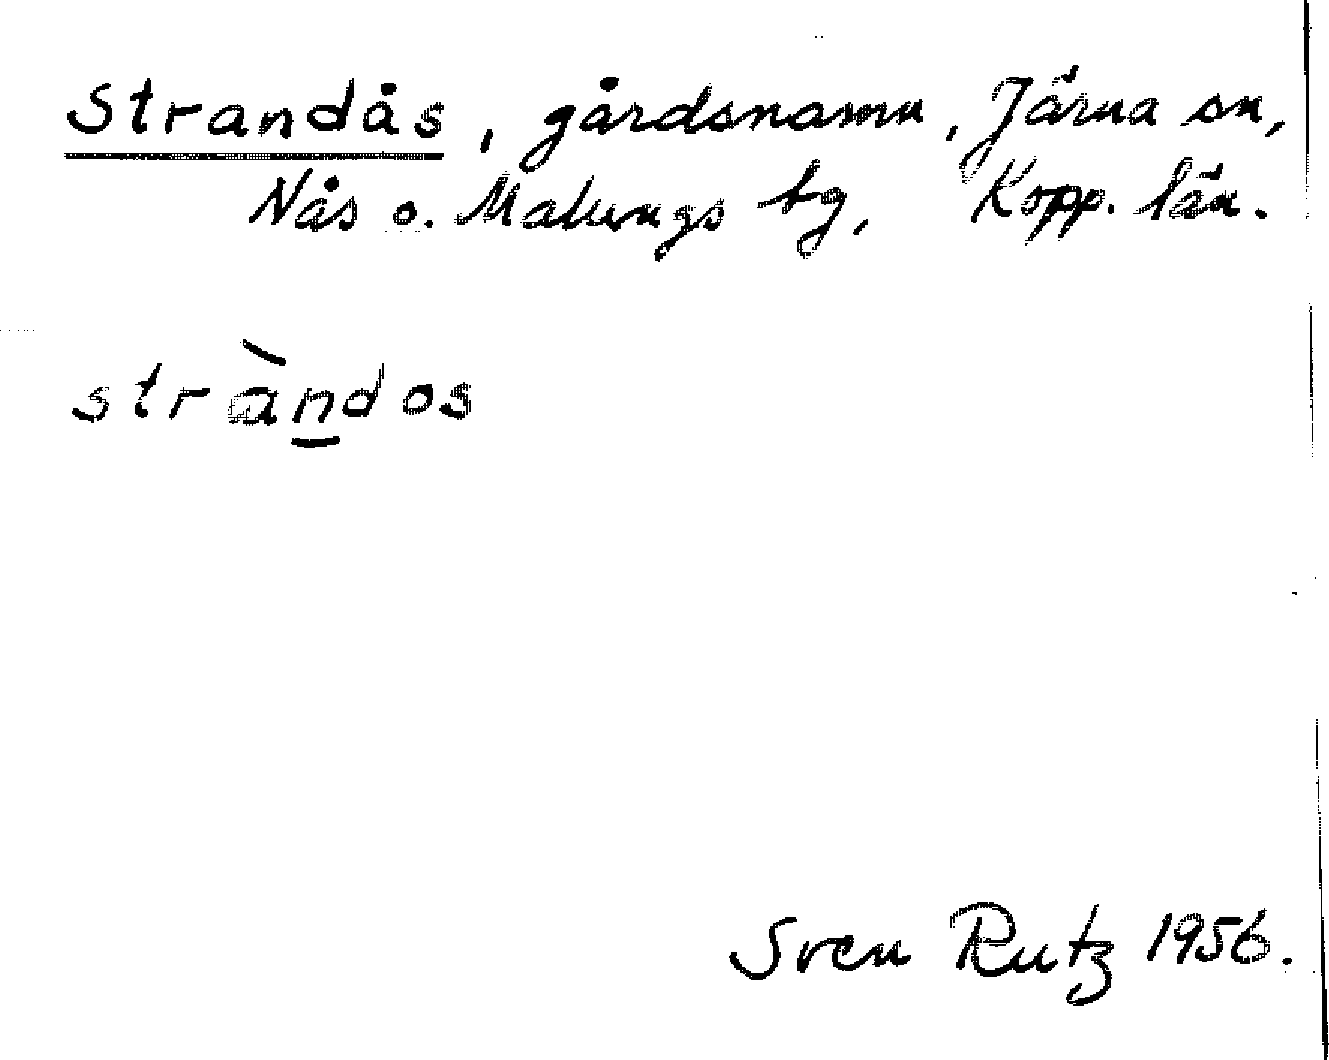 Strandås, gårdsnamn, Järna sn,
Nås o. Malungs tg, Kopp. län.
stràn̲dos
Sven Rutz 1956.